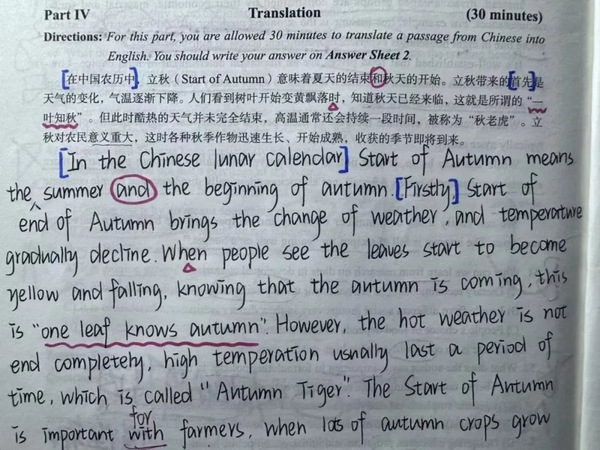 Part IV Translation (30 minutes)
Directions: For this part, you are allowed 30 minutes to translate a passage from Chinese into
English. You should write your answer on Answer Sheet 2.
在中国农历中，立秋（Start of Autumn）意味着夏天的结束和秋天的开始。立秋带来的首先是
天气的变化，气温逐渐下降。人们看到树叶开始变黄飘落时，知道秋天已经来临，这就是所谓的“一
叶知秋”。但此时酷热的天气并未完全结束，高温通常还会持续一段时间，被称为“秋老虎”。立
秋对农民意义重大，这时各种秋季作物迅速生长、开始成熟，收获的季节即将到来。
[In the Chinese lunar calendar] Start of Autumn means
the summer and the beginning of autumn. [Firstly,] Start of
end of Autumn brings the change of weather, and temperature
gradually decline. When people see the leaves start to become
yellow and falling, knowing that the autumn is coming, this
is "one leaf knows autumn". However, the hot weather is not
end completely, high temperation usually last a period of
time, which is called "Autumn Tiger". The Start of Autumn
for
is important with farmers, when lots of autumn crops grow